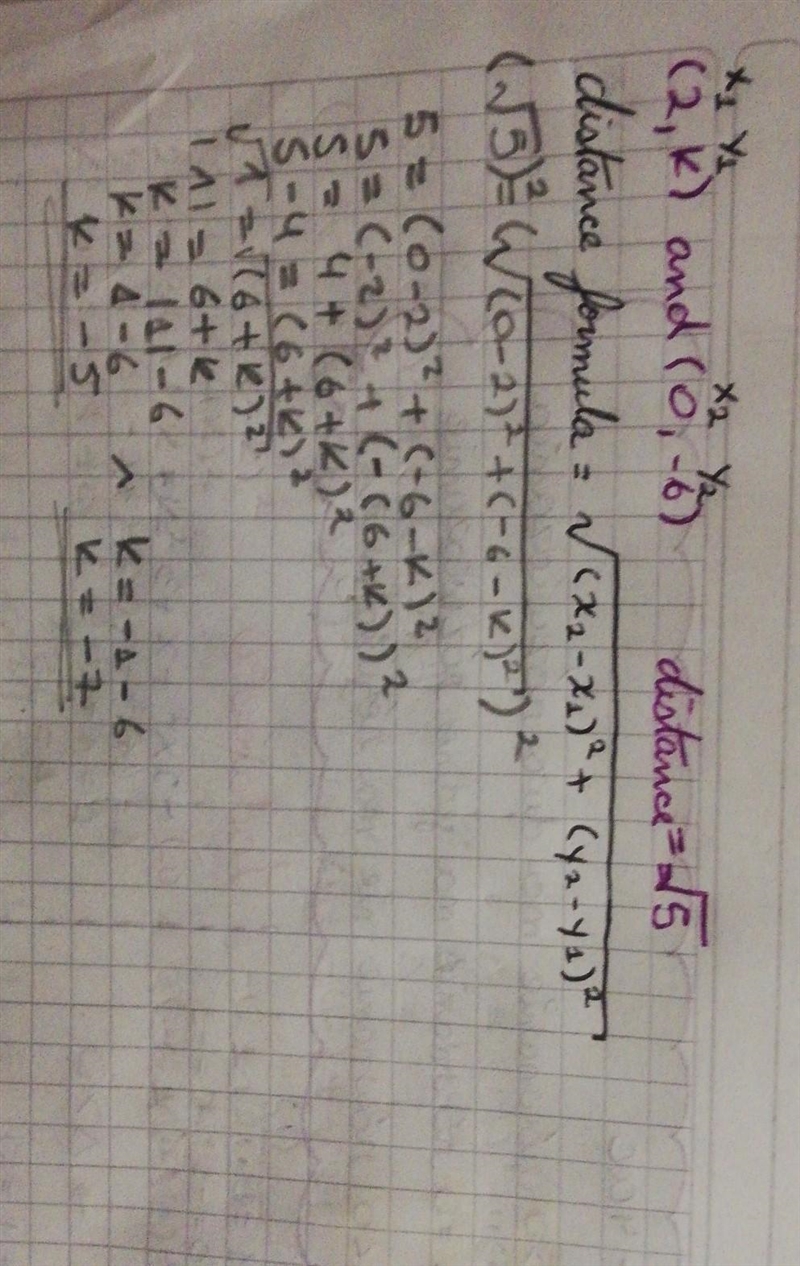 x₁ y₁ x₂ y₂
(2, k) and (0, -6) distance = √5
distance formula = √(x₂ - x₁)² + (y₂ - y₁)²
(√5)² = (√(0-2)² + (-6 - k)²)²
5 = (0-2)² + (-6 - k)²
5 = (-2)² + (-(6+k))²
5 = 4 + (6+k)²
5 - 4 = (6+k)²
√1 = √(6+k)²
|1| = 6+k
k = |1| - 6
k = 1 - 6 ^ k = -1 - 6
k = -5 k = -7